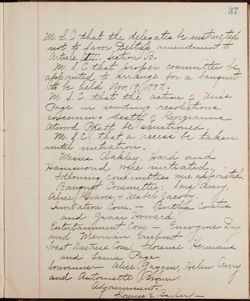 37
M. S. C. that the delegate be instructed
not to favor Delta's amendment to
Article III. Section 3.
M. S. C. that proper committee be
appointed to arrange for a banquet
to be held Nov. 19, 1897.
M. S. C. that the action of Miss
Page in sending resolutions
concerning death of Georgianna
Atwood Pratt be sanctioned.
M. S. C. that a recess be taken
until initiation.
Misses Oakley, Hard and
Hammond were initiated.
Following committees were appointed
Banquet Committee: Sara Avery,
Alice Grave & Mabel Jacoby.
Invitation Com. - Bertha Coatis
and Grace Howard.
Entertainment Com. - Imogene Day
and
Toast Mistress Com. Florence Hermans
and Laura Page.
Souvenirs - Alice Benson, Helen Avery
and Antoinette Brown.
Adjournment.